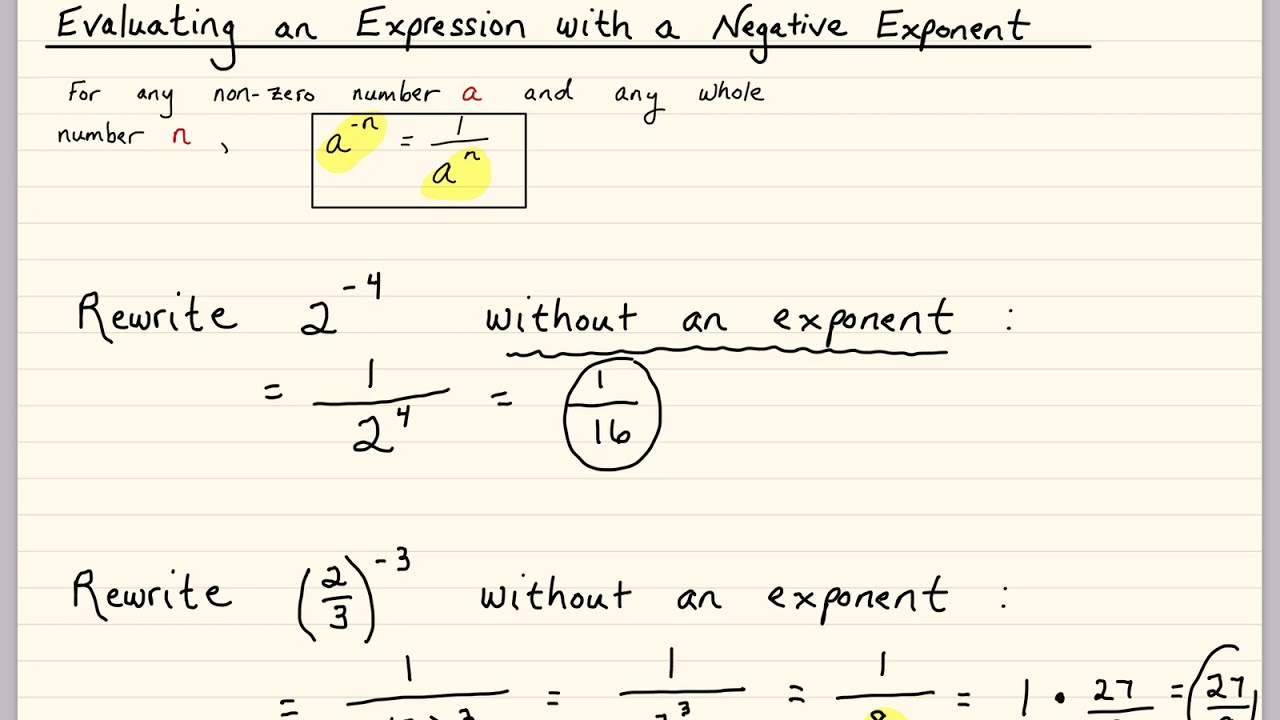 Evaluating an Expression with a Negative Exponent
For any non-zero number a and any whole
number n , a⁻ⁿ = 1/aⁿ
Rewrite 2⁻⁴ without an exponent :
= 1/2⁴ = 1/16
Rewrite (2/3)⁻³ without an exponent :
= 1 = 1 = 1/8 = 1 · 27 = 27